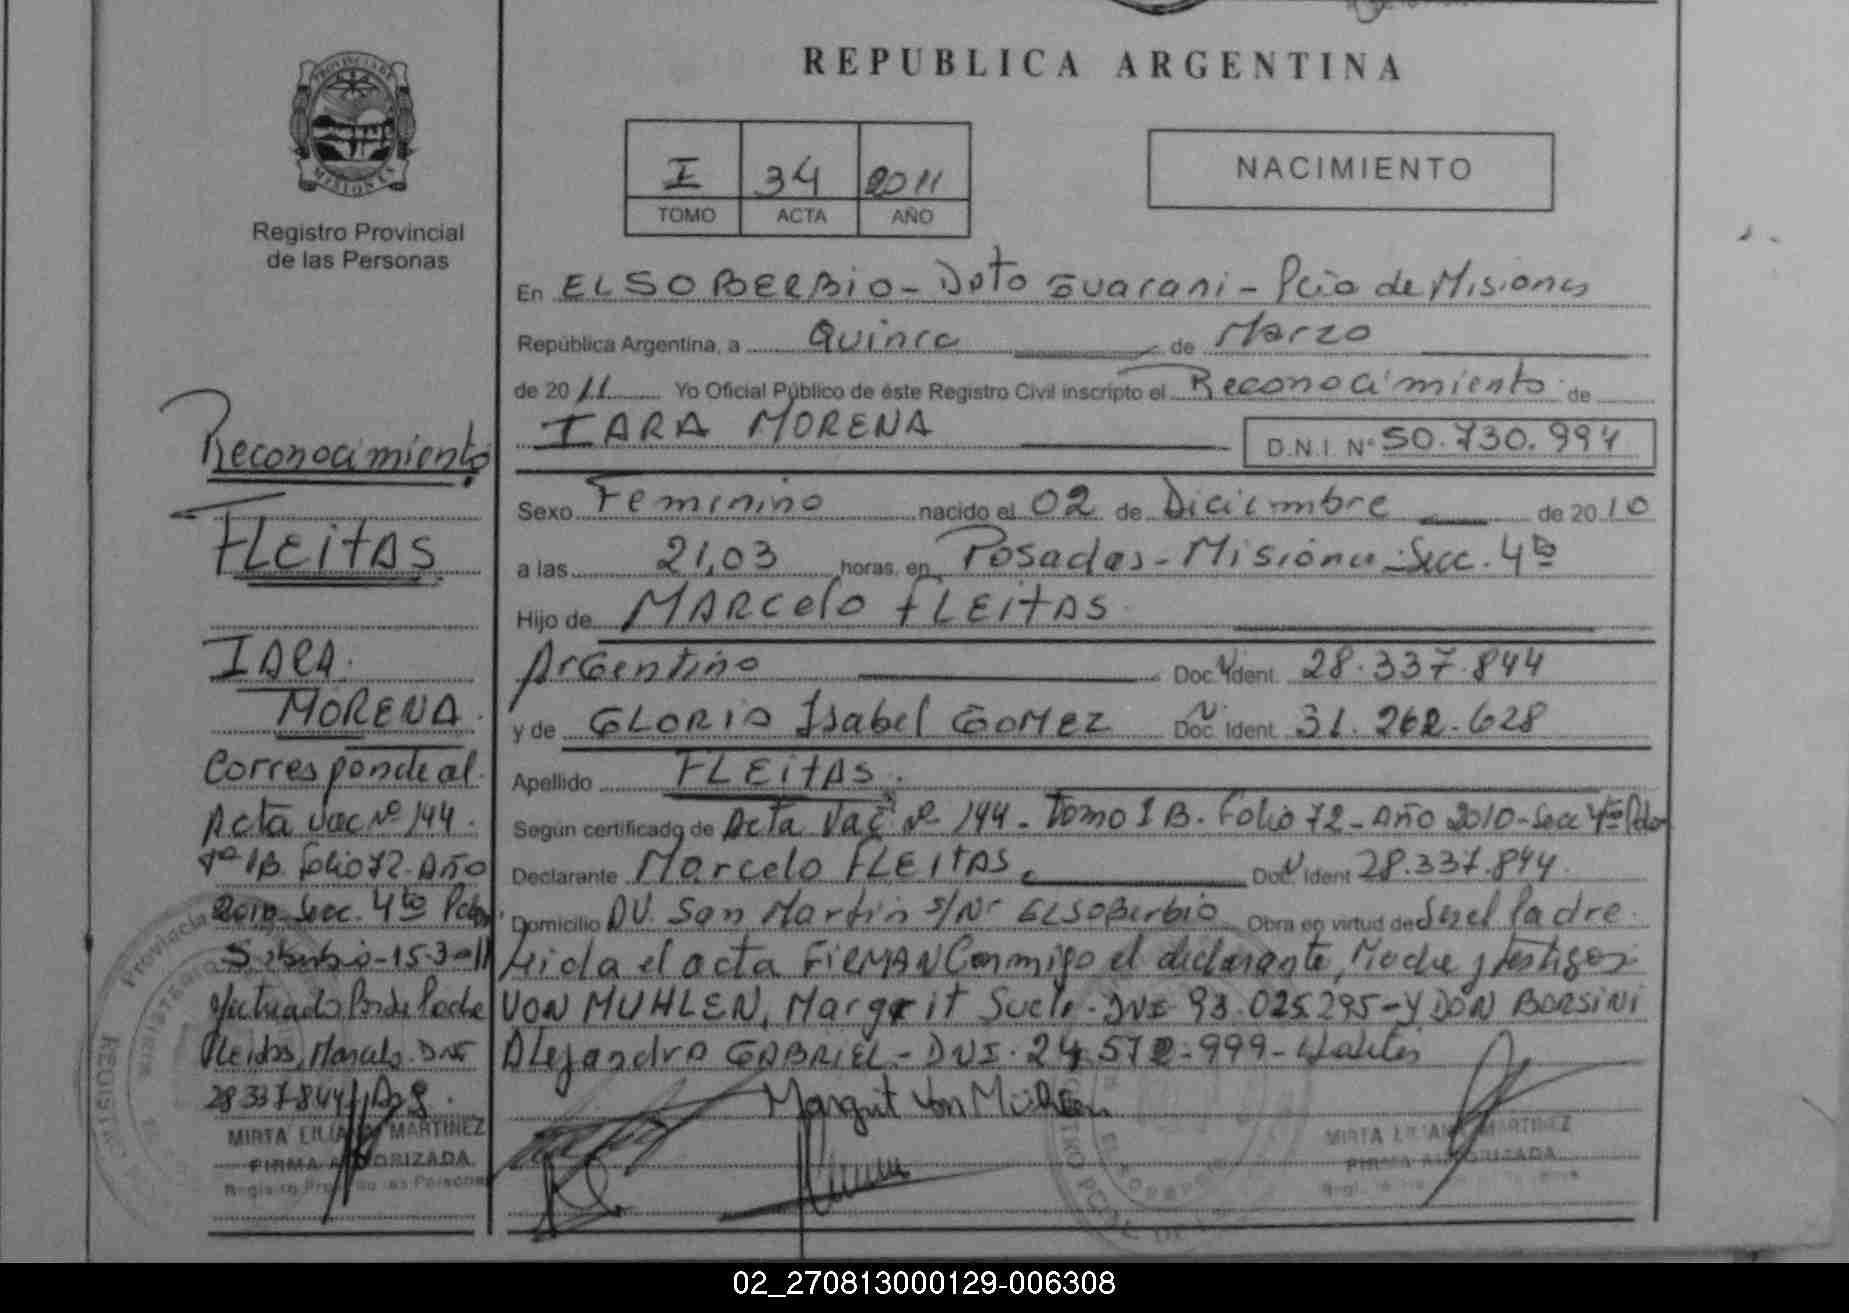 REPUBLICA ARGENTINA
PROVINCIA DE
MISIONES
Registro Provincial
de las Personas
I 34 2011
TOMO ACTA AÑO
NACIMIENTO
En ELSOBERBIO - Dpto Guarani - Pcia de Misiones
República Argentina, a Quince de Marzo
de 20 11 Yo Oficial Público de éste Registro Civil inscripto el Reconocimiento de
IARA MORENA D.N.I. Nº 50.730.994
Sexo Feminino nacido el 02 de Diciembre de 20 10
a las 21,03 horas, en Posadas - Misiones - Secc. 4ta
Hijo de MARCelo FLEITAS
Argentino Doc. Ident. 28.337.844
y de GLORIA Isabel GOMEZ Doc. Ident. 31.262.628
Apellido FLEITAS.
Según certificado de Acta Vac Nº 144 - Tomo I B. Folio 72 - Año 2010 - Secc 4ta
Declarante Marcelo FLEITAS Doc. Ident 28.337.844.
Domicilio AV. San Martin s/Nº ELSOBerbio Obra en virtud de Ser el Padre.
Leida el acta FIRMAN Conmigo el declarante, Madre y testigos
VON MUHLEN, Margrit Suele - DNI 93.025.295 - Y DON BORSINI
Alejandro GABRIEL - DNI. 24.572.999 -
Margrit von Mühlen
MIRTA LILIANA MARTINEZ
FIRMA AUTORIZADA
Reconocimiento
FLEITAS
IARA
MORENA
Corresponde al
Acta Vac Nº 144.
Tº IB. Folio 72. Año
2010 Secc. 4ta
Soberbio - 15-3-011
Padre
Fleitas, Marcelo. DNI
28.337.844, Arg.
MIRTA LILIANA MARTINEZ
FIRMA AUTORIZADA
Registro Pro de las Personas
02_270813000129-006308